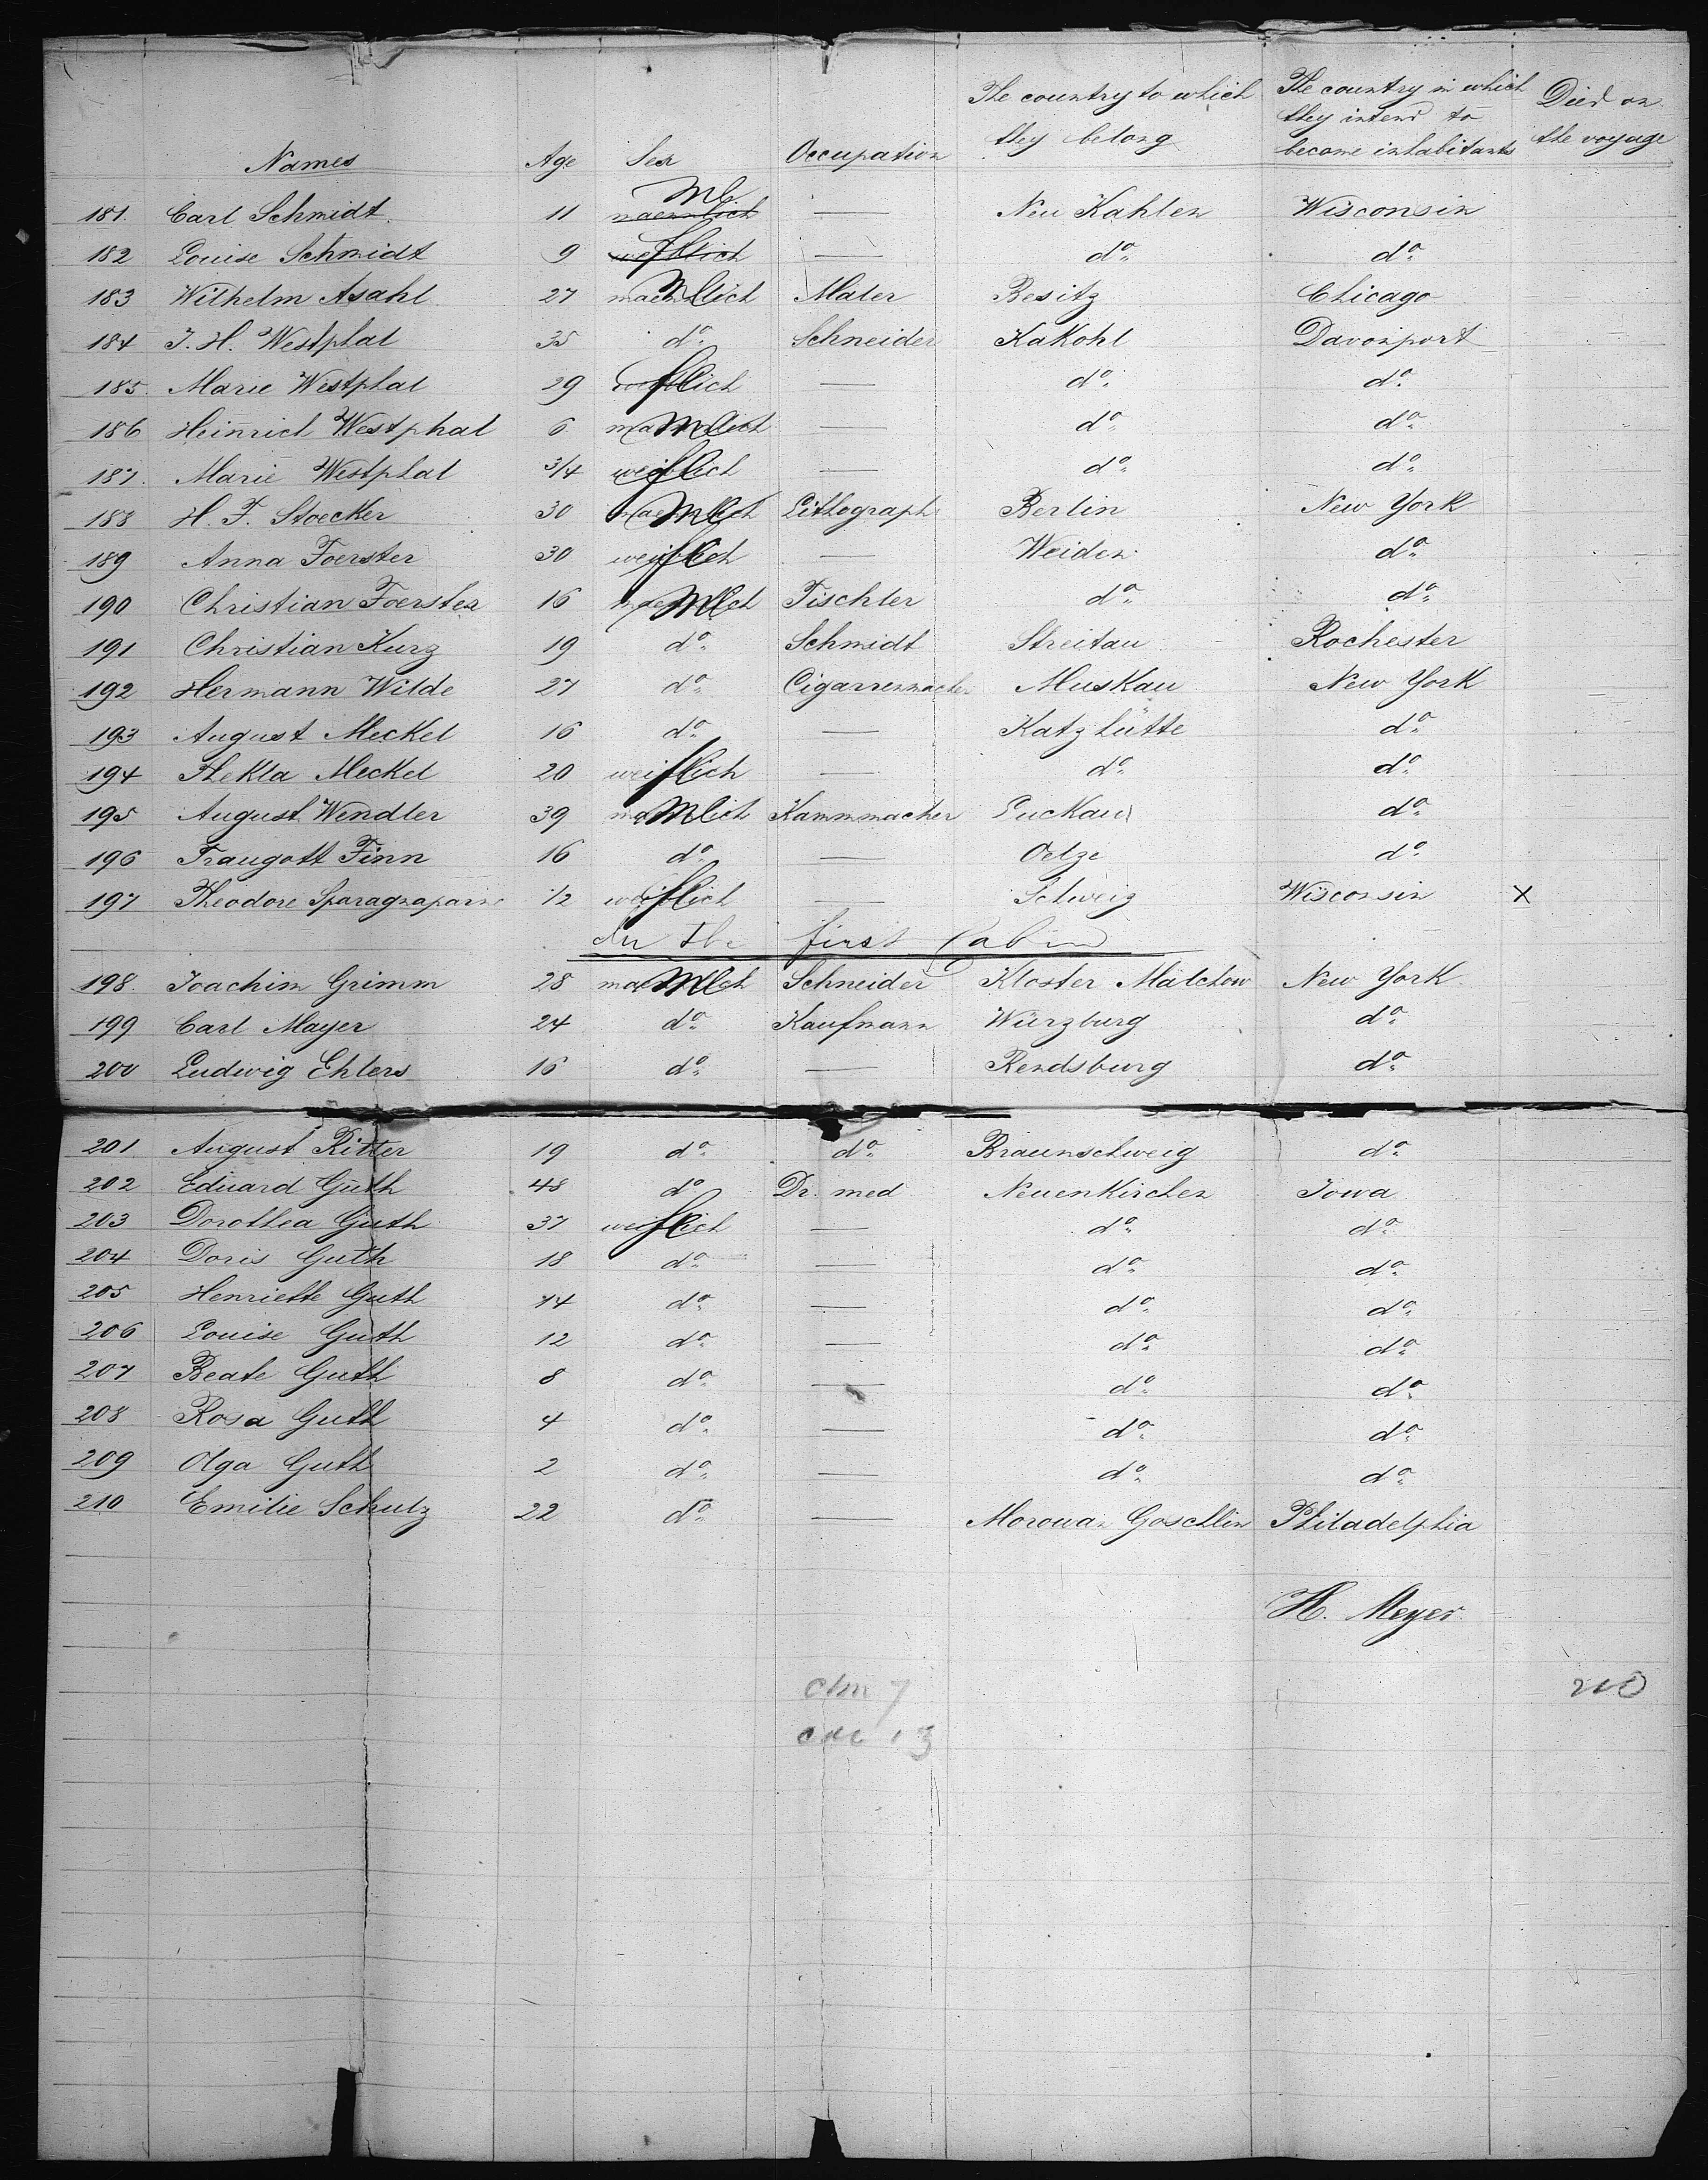 Names Age Sex Occupation The country to which they belong The country in which they intend to become inhabitants Died on the voyage
181. Carl Schmidt. 11 maennlich M — Neu Kahlen Wisconsin
182 Louise Schmidt 9 weiblich f — do. do.
183 Wilhelm Asahl 27 maennlich M Maler Besitz Chicago
184 J. H. Westphal 35 do. Schneider KaKohl Davonport
185. Marie Westphal 29 weiblich f — do. do.
186 Heinrich Westphal 6 maennlich M — do. do.
187. Marie Westphal 3/4 weiblich f — do. do.
188 H. F. Stoecker 30 maennlich M Lithograph Berlin New York
189 Anna Foerster 30 weiblich f — Weiden do.
190 Christian Foerster 16 maennlich M Tischler do. do.
191 Christian Kurz 19 do. Schmidt Streitau Rochester
192 Hermann Wilde 27 do. Cigarrenmacher Muskau New York
193 August Meckel 16 do. — Katzhütte do.
194 Thekla Meckel 20 weiblich f — do. do.
195 August Wendler 39 maennlich M Kammmacher Luckau do.
196 Traugott Finn 16 do. — Oelze do.
197 Theodore 1/2 weiblich f — Schweiz Wisconsin X
In the first Cabin
198. Joachim Grimm 28 maennlich M Schneider Kloster Malchow New York
199 Carl Mayer 24 do. Kaufmann Würzburg do.
200 Ludwig Ehlers 16 do. — Rendsburg do.
201 August Ritter 19 do. do. Braunschweig do.
202 Eduard Guth 48 do. Dr. med Neuenkirchen Iowa
203 Dorothea Guth 37 weiblich f — do. do.
204 Doris Guth 18 do. — do. do.
205 Henriette Guth 14 do. — do. do.
206 Louise Guth 12 do. — do. do.
207 Beate Guth 8 do. — do. do.
208 Rosa Guth 4 do. — do. do.
209 Olga Guth 2 do. — do. do.
210 Emilie Schulz 22 do. — Philadelphia
H. Meyer.
210